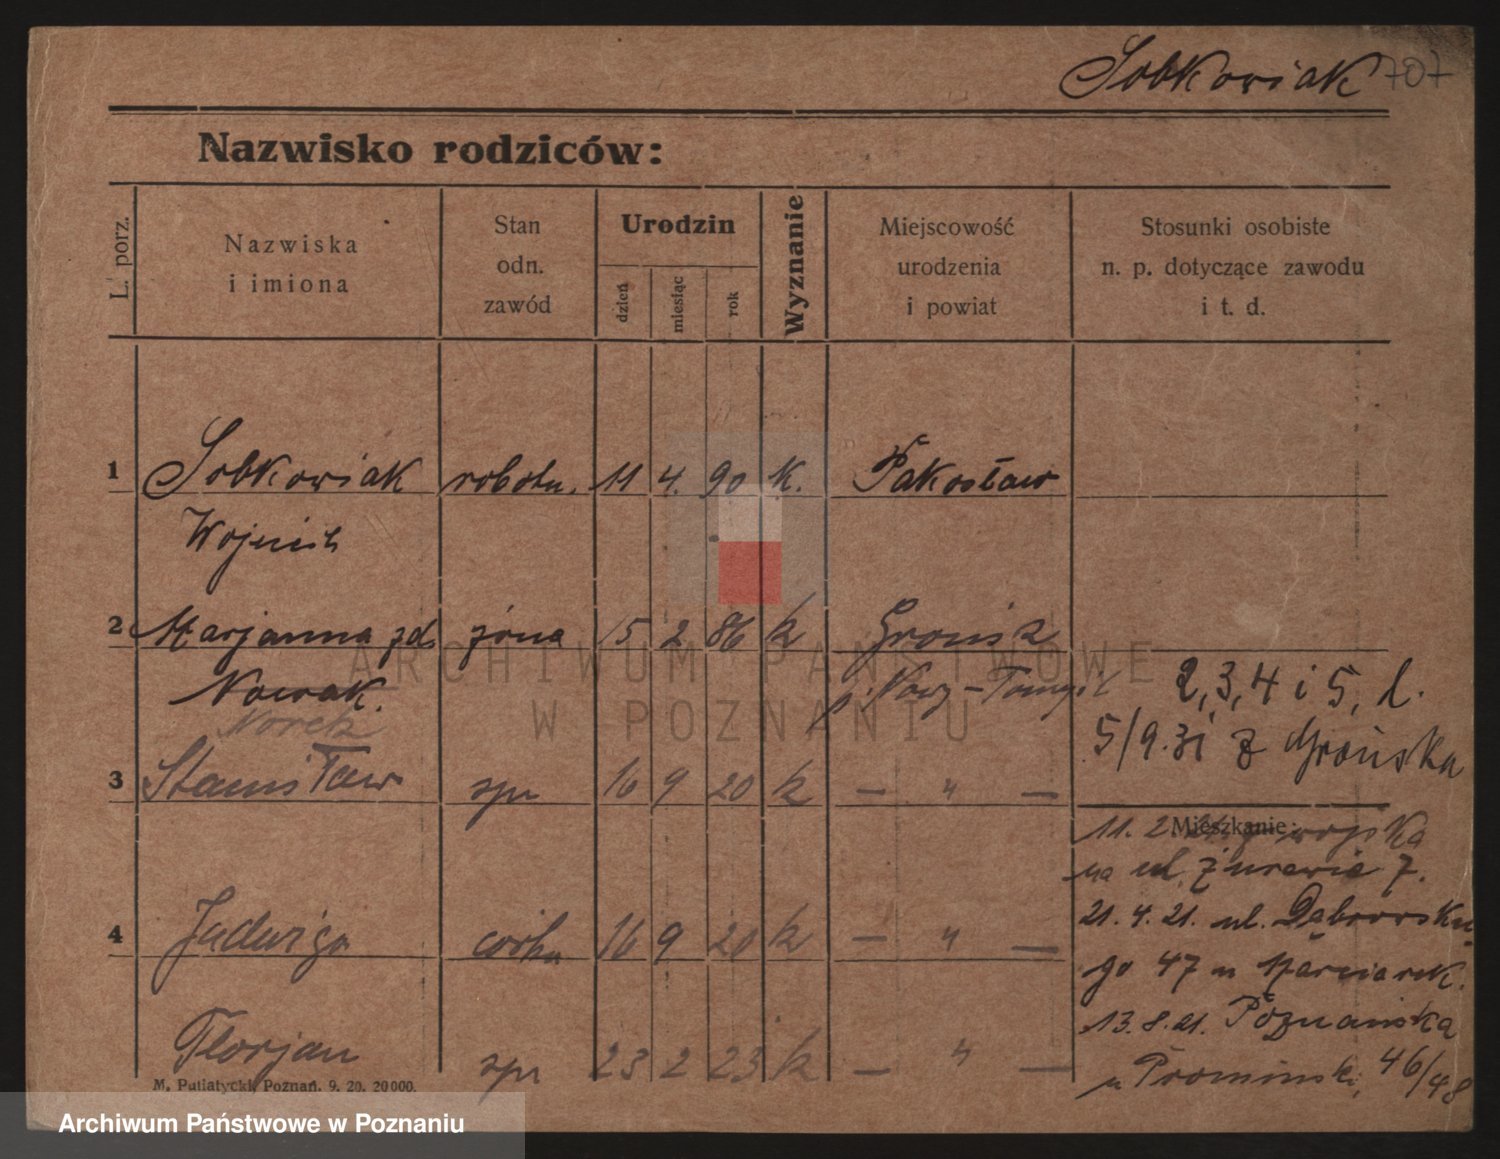 Sobkowiak 707
Nazwisko rodziców:
L. porz.
Nazwiska
i imiona
Stan
odn.
zawód
Urodzin
dzień
miesiąc
rok
Wyznanie
Miejscowość
urodzenia
i powiat
Stosunki osobiste
n. p. dotyczące zawodu
i t. d.
1 Sobkowiak robotn. 11 4. 90 k. Pakosław
Wojciech
2 Marjanna zd. żona 15 2 86 k Grońsk
Nowak. p. Nowy-Tomyśl
Norek
2, 3, 4 i 5, d.
5/9.31 z Grońska
3 Stanisław syn 16 9 20 k — " —
Mieszkanie:
11. 2 wojska
na ul. Żurawia 7.
21. 4. 21. ul. Dąbrowsku
4 Jadwiga córka 16 9 20 k — " —
go 47 u Marciarek.
13. 8. 21. Poznańska
Florjan syn 23 2 23 k — " —
u Promiński, 46/48
M. Putiatycki, Poznań. 9. 20. 20000.
ARCHIWUM PAŃSTWOWE
W POZNANIU
Archiwum Państwowe w Poznaniu